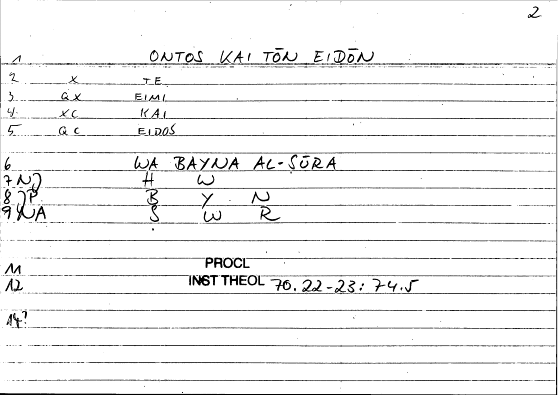 2
1 ONTOS KAI TŌN EIDŌN
2 X TE
3 QX EIMI
4. XC KAI
5. QC EIDOS
6 WA BAYNA AL-ṢŪRA
7 N) H W
8 )P B Y N
9 NA Ṣ W R
11 PROCL
12 INST THEOL 70.22-23: 74.5
14?